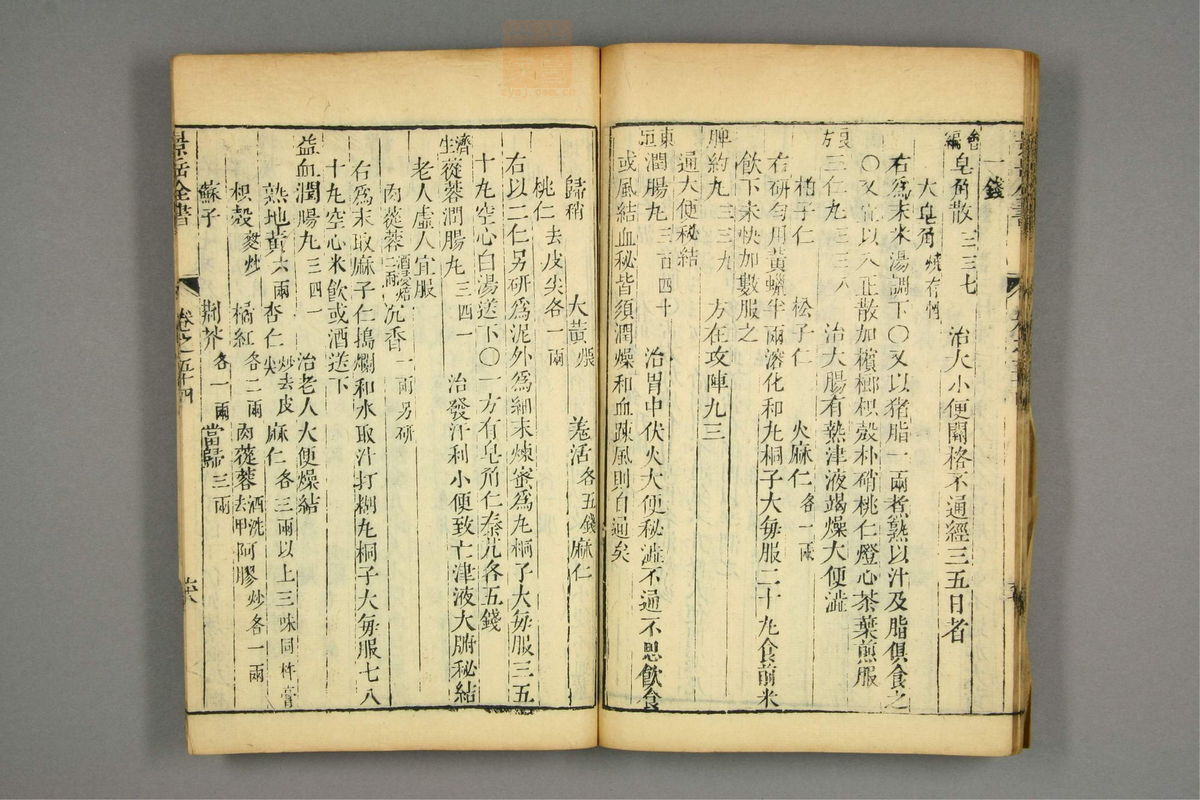 一錢
會編皂角散三三七　治大小便關格不通經三五日者
大皂角燒存性
右爲末米湯調下〇又以猪脂一兩煮熟以汁及脂俱食之
〇又宜以八正散加檳榔枳殼朴硝桃仁燈心茶葉煎服
良方三仁丸三三八　治大腸有熱津液竭燥大便澁
柏子仁　松子仁　火麻仁各一兩
右研勻用黃蠟半兩溶化和丸桐子大每服二十丸食前米
飲下未快加數服之
脾約丸三三九　方在攻陣九三
通大便秘結
東垣潤腸丸三百四十　治胃中伏火大便秘澁不通不思飲食
或風結血秘皆須潤燥和血疎風則自通矣
歸稍　大黃煨　羗活各五錢　麻仁
桃仁去皮尖各一兩
右以二仁另研爲泥外爲細末煉蜜爲丸桐子大每服三五
十丸空心白湯送下〇一方有皂角仁秦艽各五錢
濟生蓯蓉潤腸丸三四一　治發汗利小便致亡津液大腑秘結
老人虛人宜服
肉蓯蓉酒浸焙二兩　沉香一兩另研
右爲末取麻子仁搗爛和水取汁打糊丸桐子大每服七八
十丸空心米飲或酒送下
益血潤腸丸三四一　治老人大便燥結
熟地黃六兩　杏仁炒去皮尖　麻仁各三兩以上三味同杵膏
枳殼麩炒　橘紅各二兩　肉蓯蓉酒洗去甲　阿膠炒各一兩
蘇子　荆芥各一兩　當歸三兩
景岳全書　卷之五十四